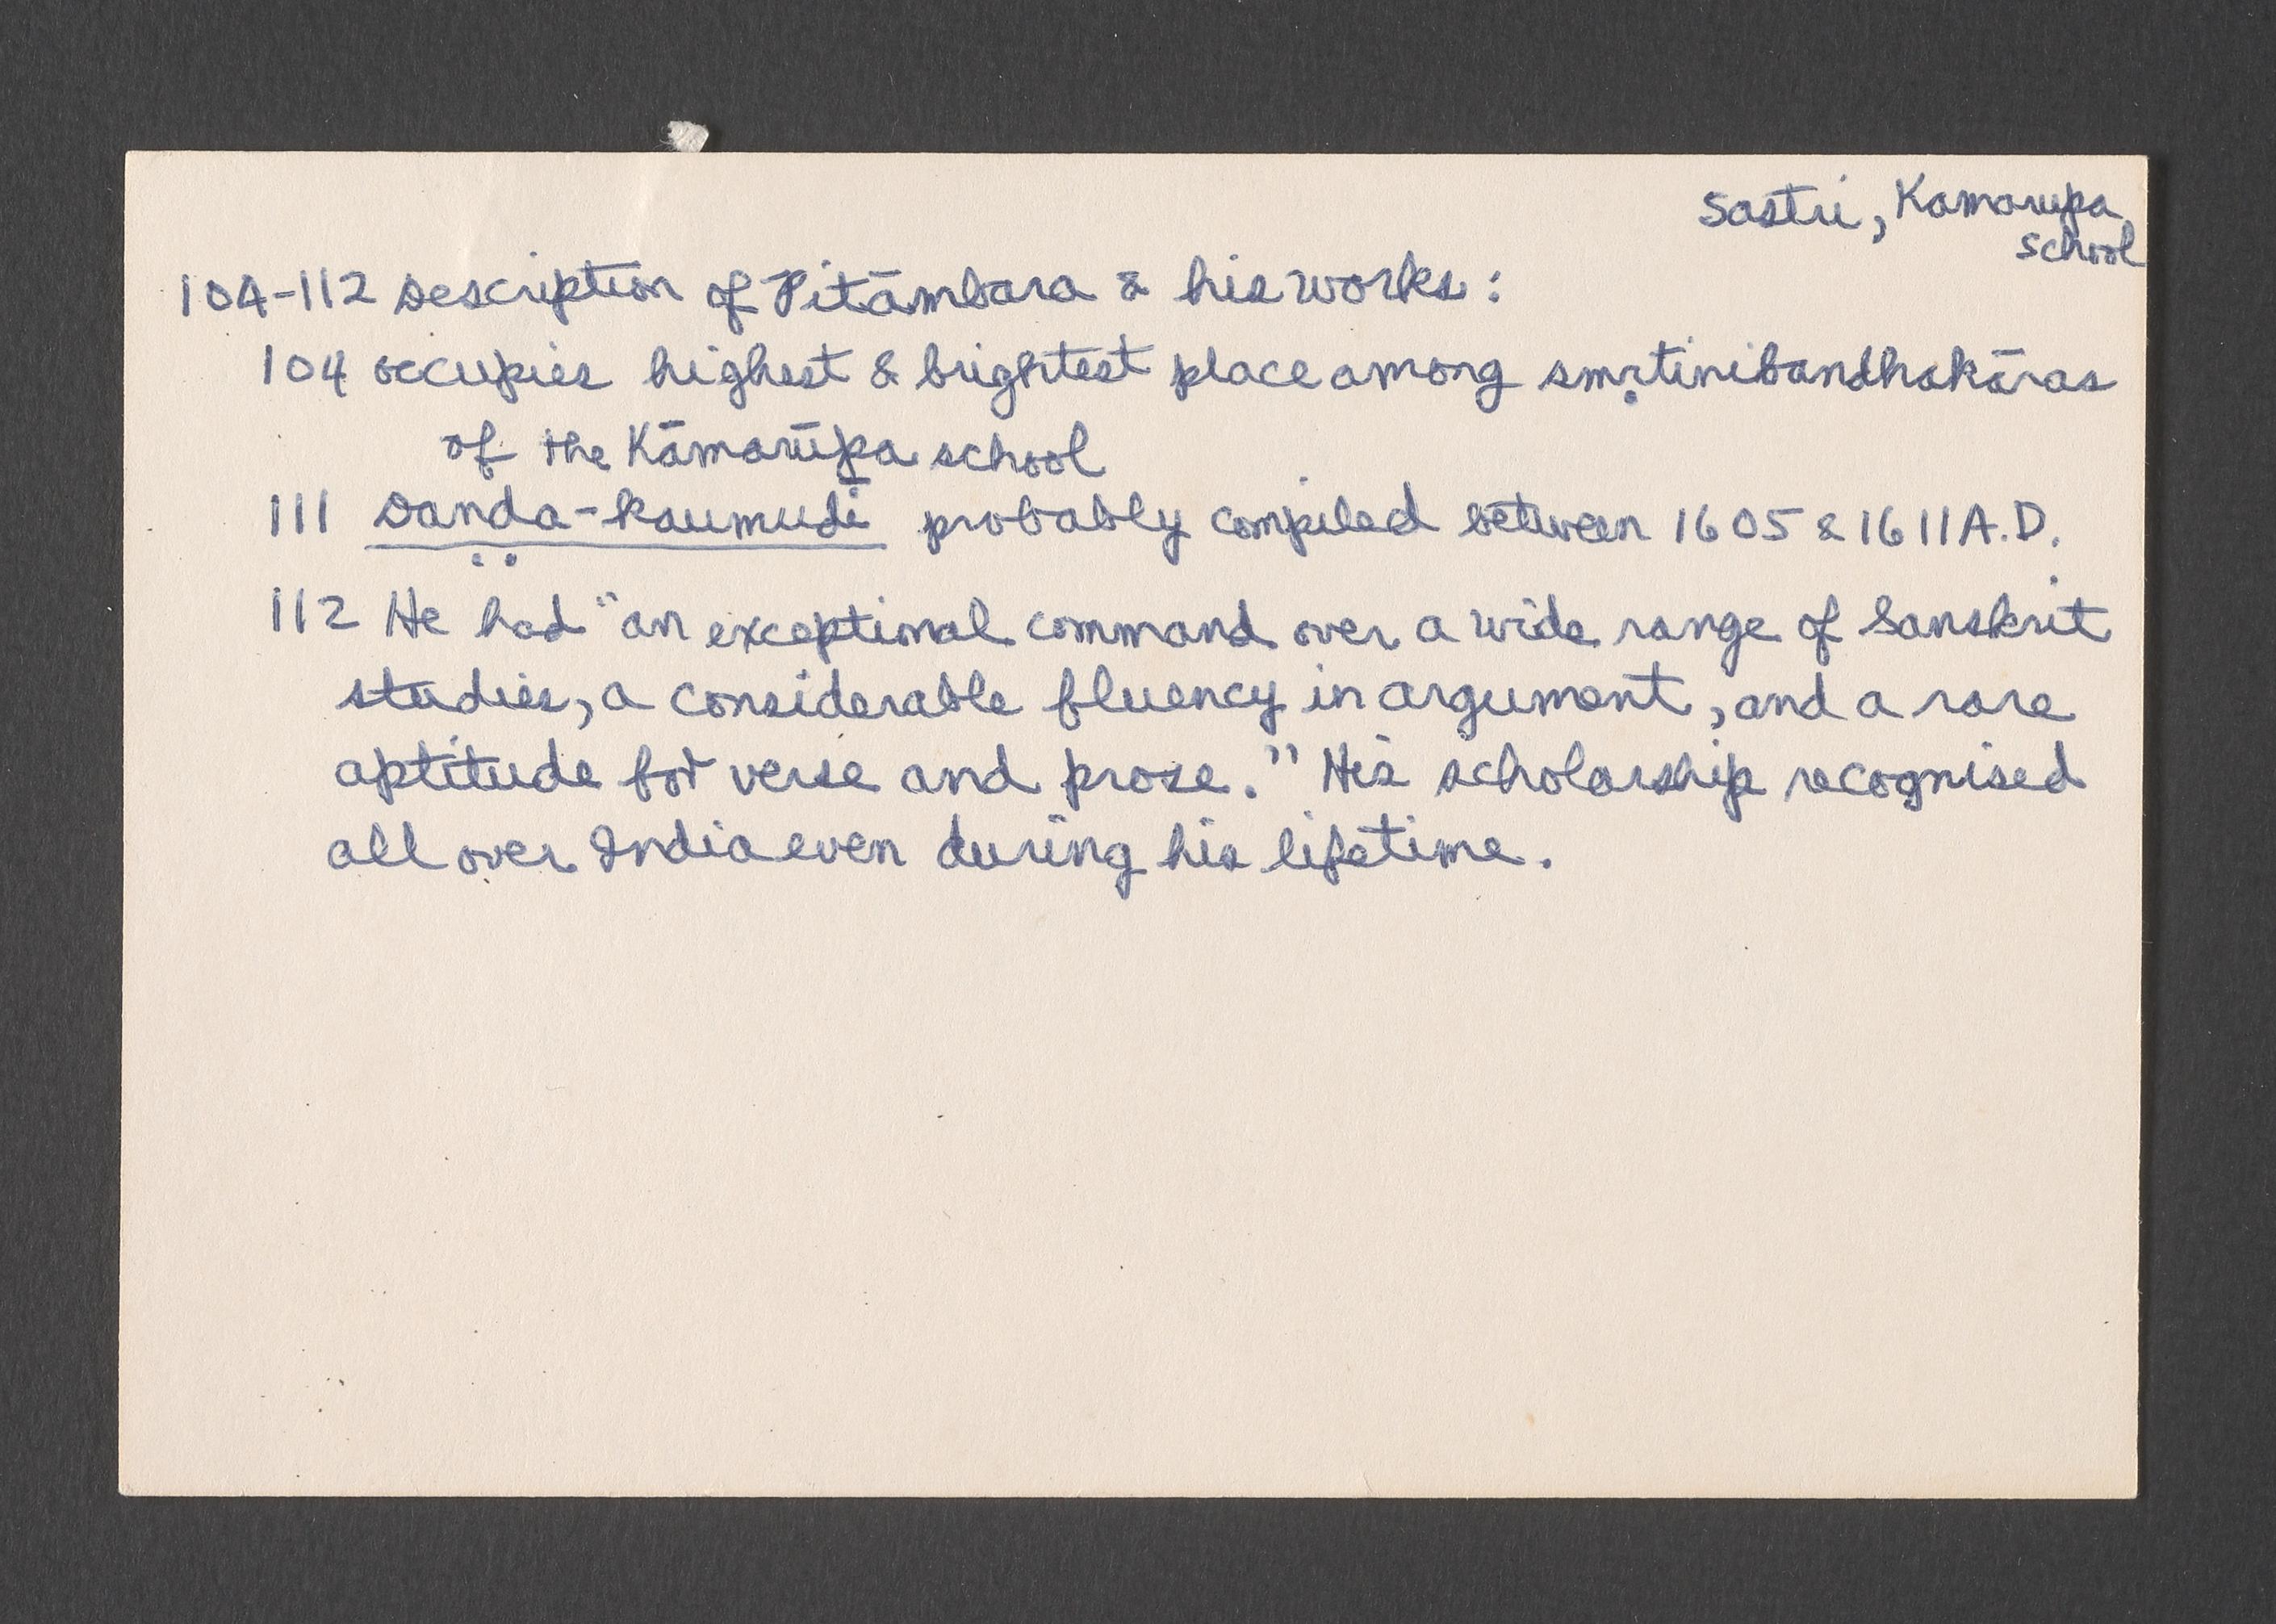 Sastri, Kamarupa
School
104-112 Description of Pitāmbara & his works:
104 occupies highest & brightest place among smṛtinibandhakāras
of the Kāmarūpa school
111 Daṇḍa-kaumudī probably compiled between 1605 & 1611 A.D.
112 He had "an exceptional command over a wide range of Sanskrit
studies, a considerable fluency in argument, and a rare
aptitude for verse and prose." His scholarship recognised
all over India even during his lifetime.